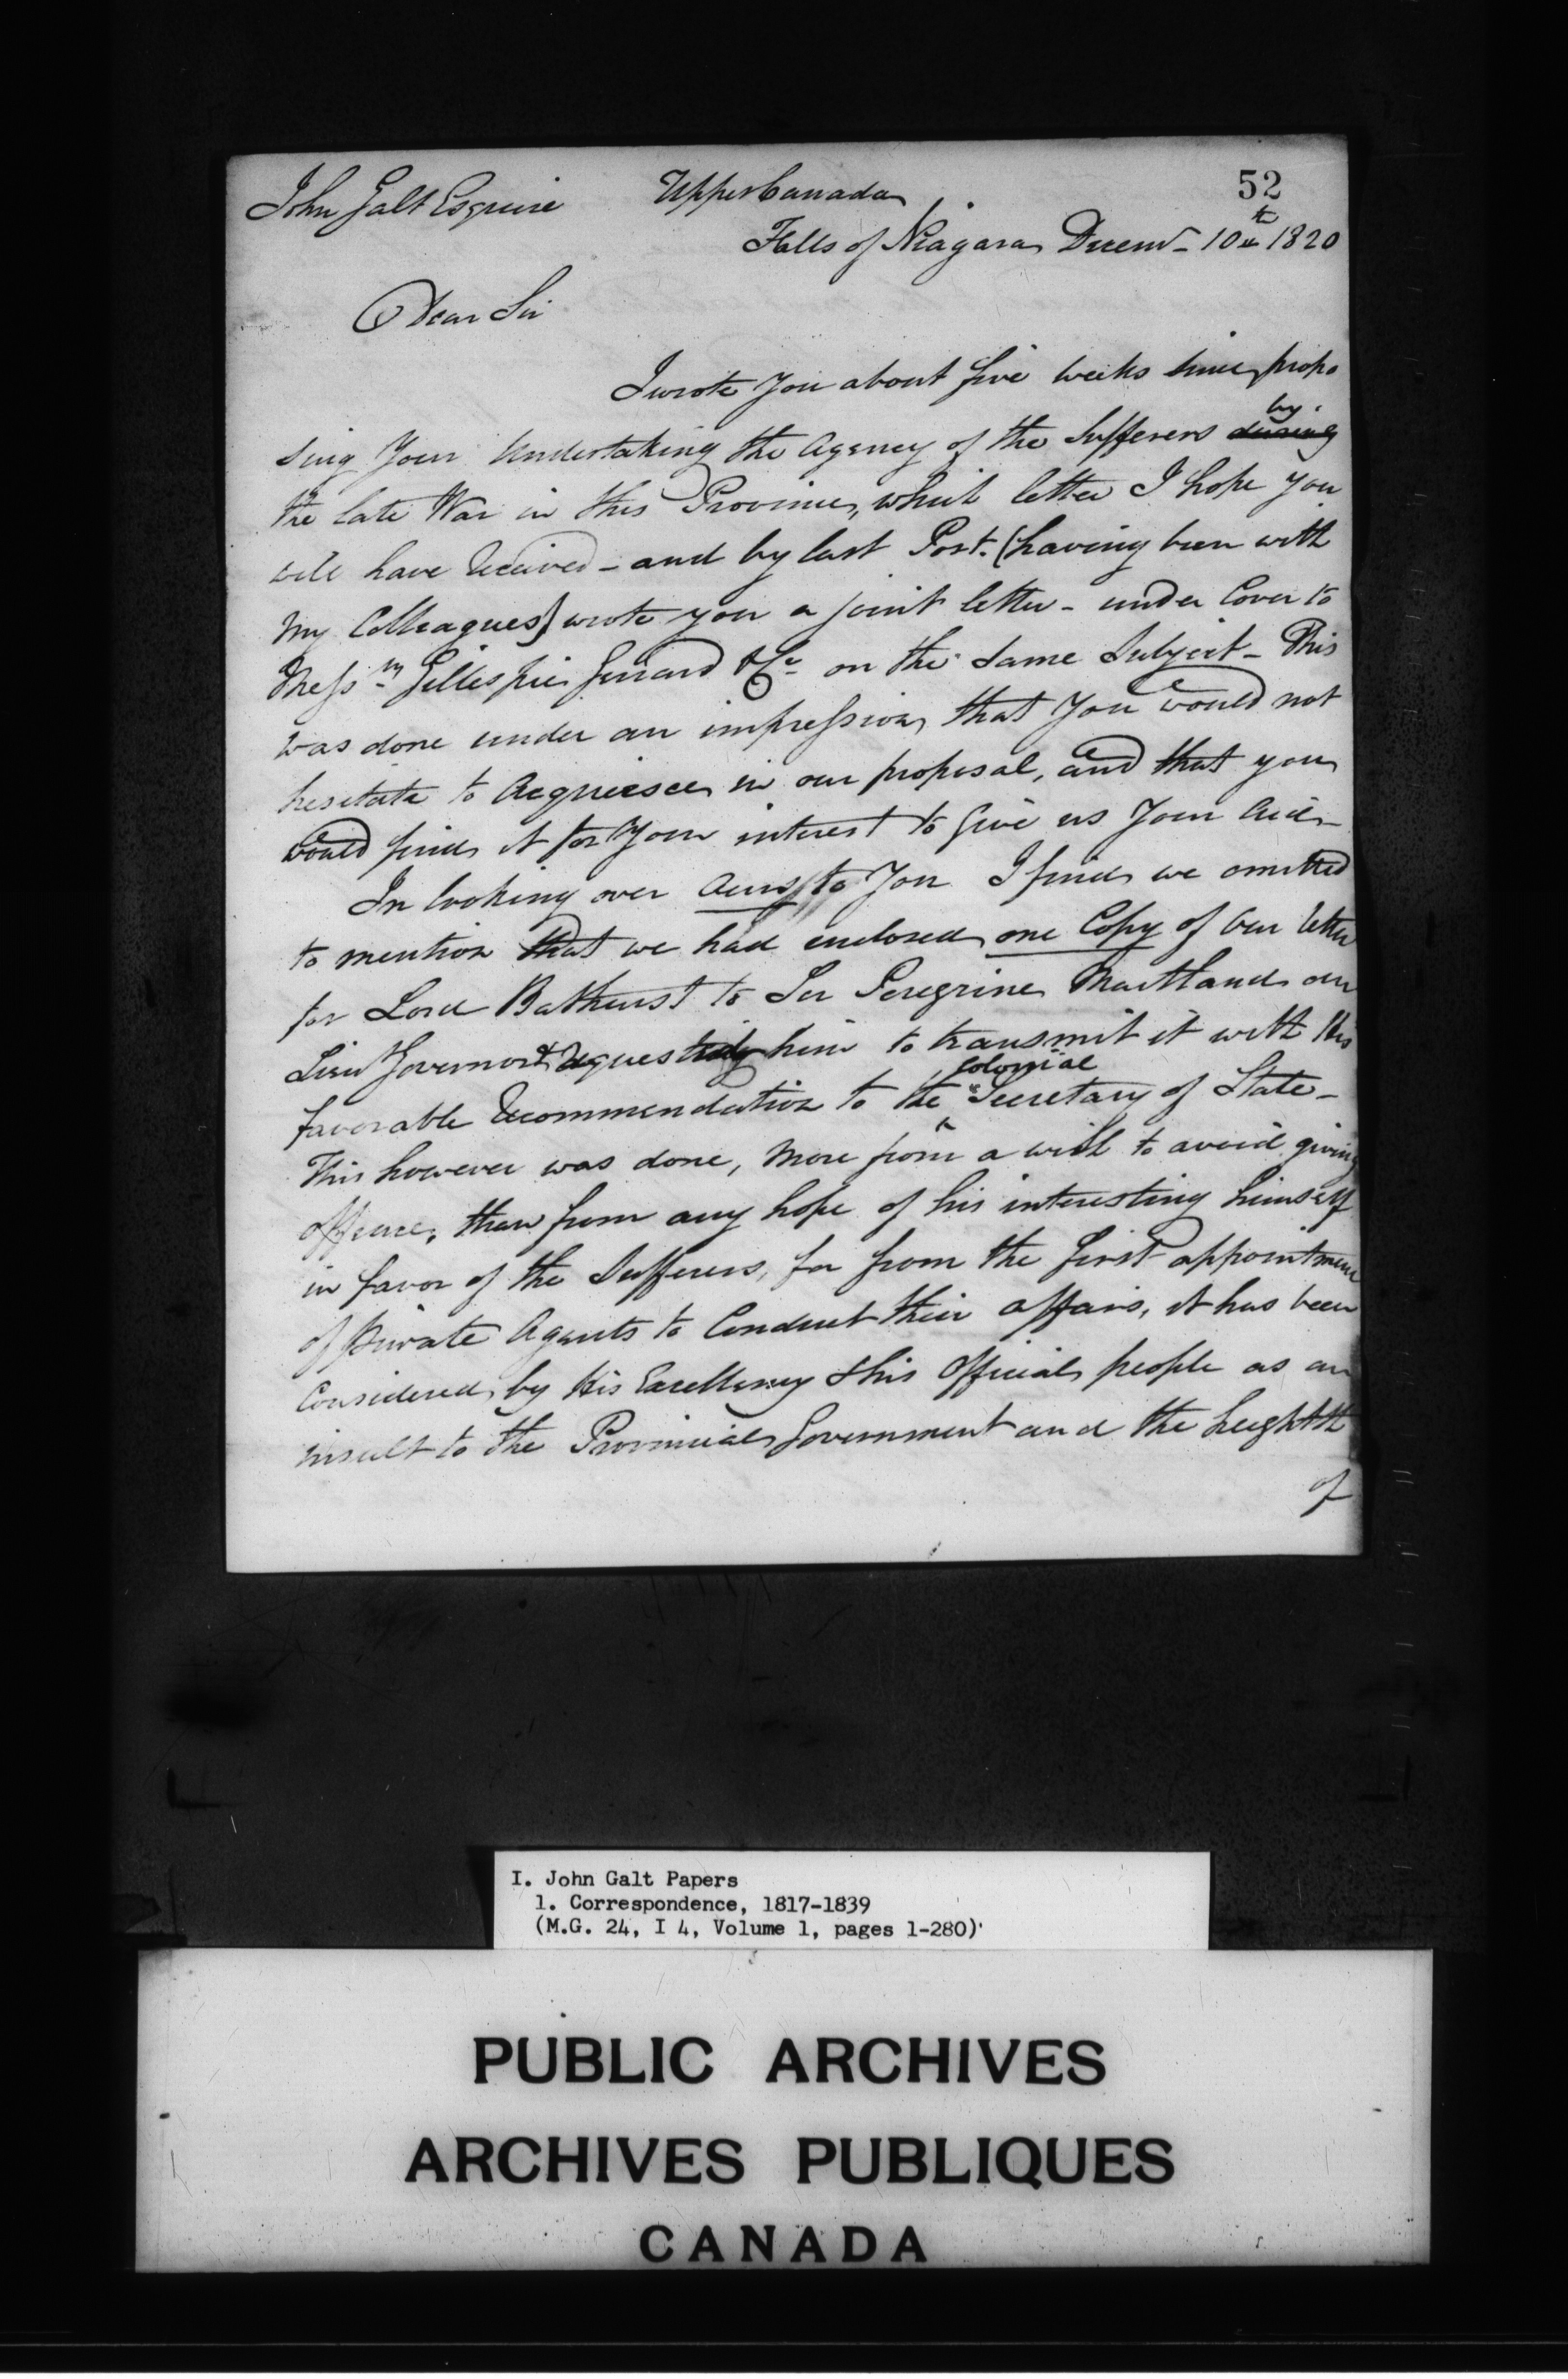 52
John Galt Esquire Upper Canada
Falls of Niagara Decemr 10th 1820
Dear Sir
I wrote You about five weeks since, propo
sing Your Undertaking the Agency of the Sufferers during by
the late War in this Province, which letter I hope you
will have Received - and by last Post. (having been with
my Colleagues) wrote you a joint letter - under Cover to
Messrs Gillespie Gerrard & Co on the Same Subject - This
was done under an impression, that You would not
hesitate to Acquiesce in our proposal, and that you
would find it for Your interest to give us Your Aid -
In looking over Ours to You I find we omitted
to mention that we had enclosed one Copy of Our letter
for Lord Bathurst to Sir Peregrine Maitland our
Lieu Governor & Requesting him to transmit it with His
favorable Recommendation to the Colonial Secretary of State -
This however was done, More from a wish to avoid giving
offence, than from any hope of his interesting himself
in favor of the Sufferers, for from the first appointment
of private Agents to Conduct their affairs, it has been
Considered, by His Excellency & his Official people as an
insult to the Provincial Government and the heighth
of
I. John Galt Papers
1. Correspondence, 1817-1839
(M.G. 24, I 4, Volume 1, pages 1-280)
PUBLIC ARCHIVES
ARCHIVES PUBLIQUES
CANADA